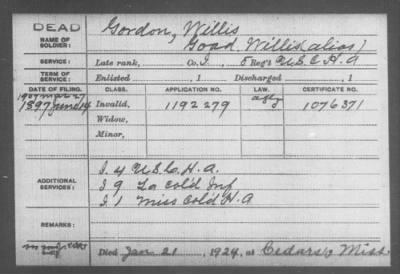 DEAD
NAME OF SOLDIER: Gordon, Willis
Goad, Willis (alias)
SERVICE: Late rank, Co. I, 5 Reg't U.S.C.H.A
TERM OF SERVICE: Enlisted , 1 Discharged , 1
DATE OF FILING. CLASS. APPLICATION NO. LAW. CERTIFICATE NO.
1907 Mar 27
1897 June 14 Invalid, 1192279 1076371
Widow,
Minor,
ADDITIONAL SERVICES: I. 4 U.S.C.H.A.
I 9 La Col'd Inf
I. 1 Miss Col'd H.A
REMARKS:
Died Jan 21, 1924, at Cedars, Miss.